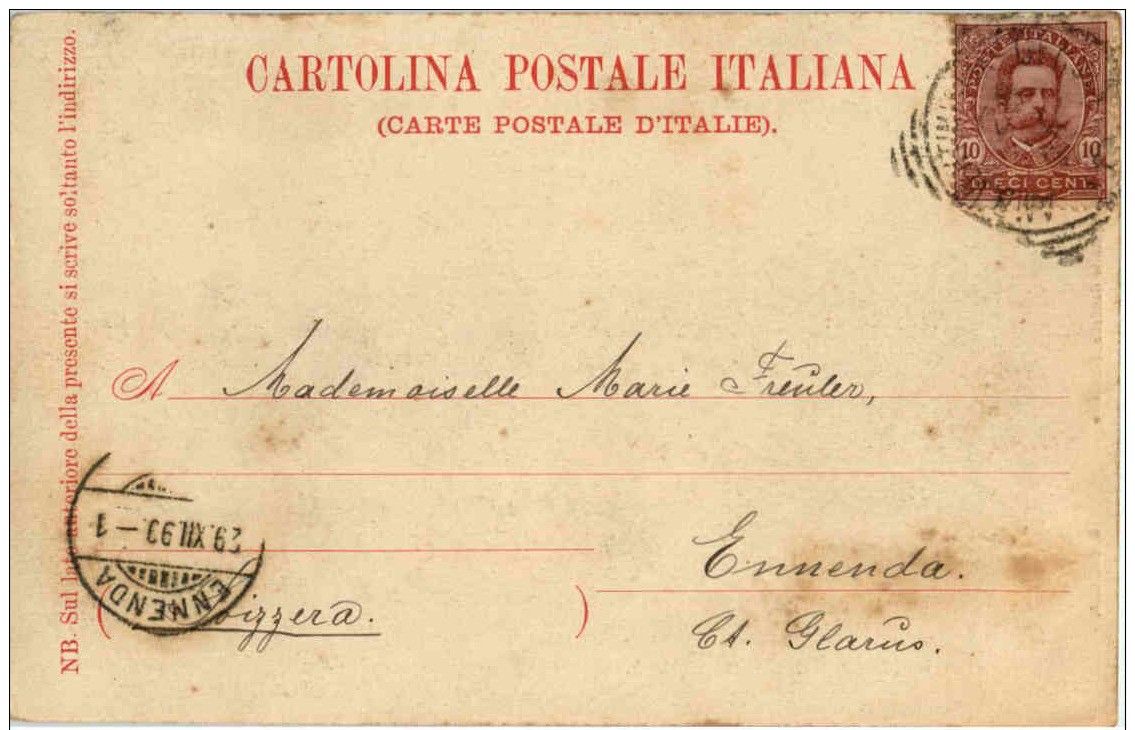 CARTOLINA POSTALE ITALIANA
(CARTE POSTALE D'ITALIE).
POSTE ITALIANE
10 10
DIECI CENT.
NB. Sul lato anteriore della presente si scrive soltanto l'indirizzo.
A Mademoiselle Marie Freuler,
Ennenda.
(Svizzera.)
Ct. Glarus.
ENNENDA